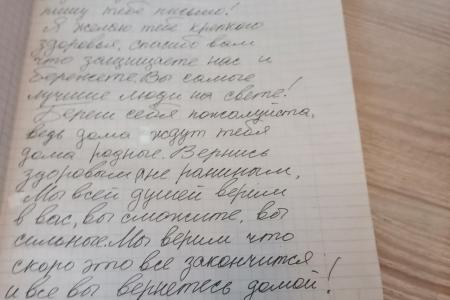 пишу тебе письмо!
Я желаю тебе крепкого
здоровья, спасибо вам
что защищаете нас и
бережете. Вы самые
лучшие люди на свете!
Береги себя пожалуйста,
ведь дома ждут тебя
дома родные. Вернись
здоровым не раниным,
Мы всей душей верим
в вас, вы сможите, вы
сильные. Мы верим что
скоро это все закончится
и все вы вернетесь домой!